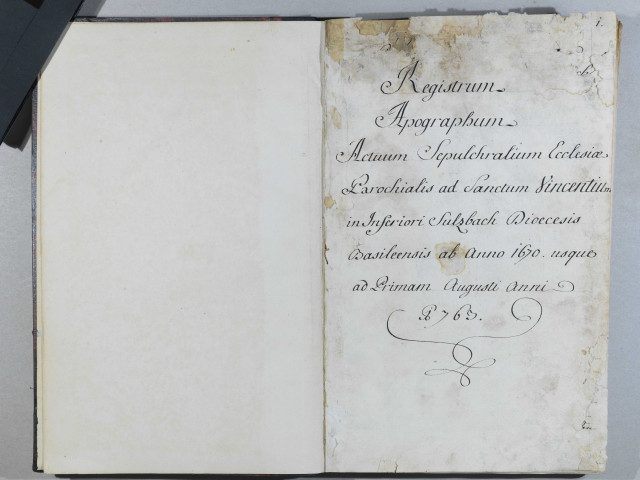 1.
Registrum
Apographum
Actuum Sepulchralium Ecclesiæ
Parochialis ad Sanctum Vincentium
in Inferiori Sulzbach Dioecesis
Basileensis ab Anno 1670. usque
ad Primam Augusti Anni
1763.